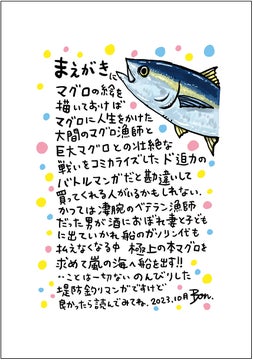 まえがきに
マグロの絵を
描いておけば
マグロに人生をかけた
大間のマグロ漁師と
巨大マグロとの壮絶な
戦いをコミカライズした ド迫力の
バトルマンガだと勘違いして
買ってくれる人がいるかもしれない。
かつては凄腕のベテラン漁師
だった男が酒におぼれ妻と子ども
に出ていかれ船のガソリン代も
払えなくなる中 極上の本マグロを
求めて嵐の海へ船を出す!!
…ことは一切ない のんびりした
堤防釣りマンガですけど
良かったら読んでみてね。2023.10月 Bon.